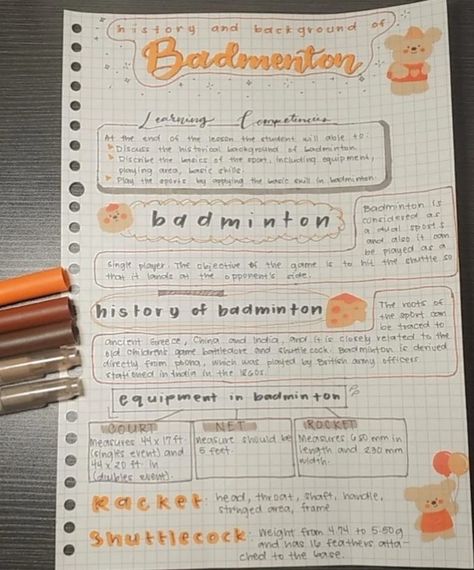 history and background of
Badmenton
Learning Competencies
At the end of the lesson the student will able to:
Discuss the historical background of badminton.
Discribe the basics of the sport, including equipment,
playing area, basic skills.
Play the sports by applying the basic skill in badminton
badminton
Badminton is
considered as
a dual sports
and also it can
be played as a
single player. The objective of the game is to hit the shuttle so
that it lands at the opponent's side.
history of badminton
The roots of
the sport can
be traced to
ancient Greece, China and India, and it is closely related to the
old children's game battledore and shuttlecock. Badminton is derived
directly from phona, which was played by British army officers
stationed in India in the 1860s.
equipment in badminton
COURT
Measures 44x17 ft.
(singles event) and
44x20 ft. in
(doubles event).
NET
Measure should be
5 feet.
ROCKET
Measures 680 mm in
length and 230 mm
width.
Racket: head, throat, shaft, handle,
stringed area, frame
Shuttlecock: Weight from 4.74 to 5.50g
and has 16 feathers atta-
ched to the base.